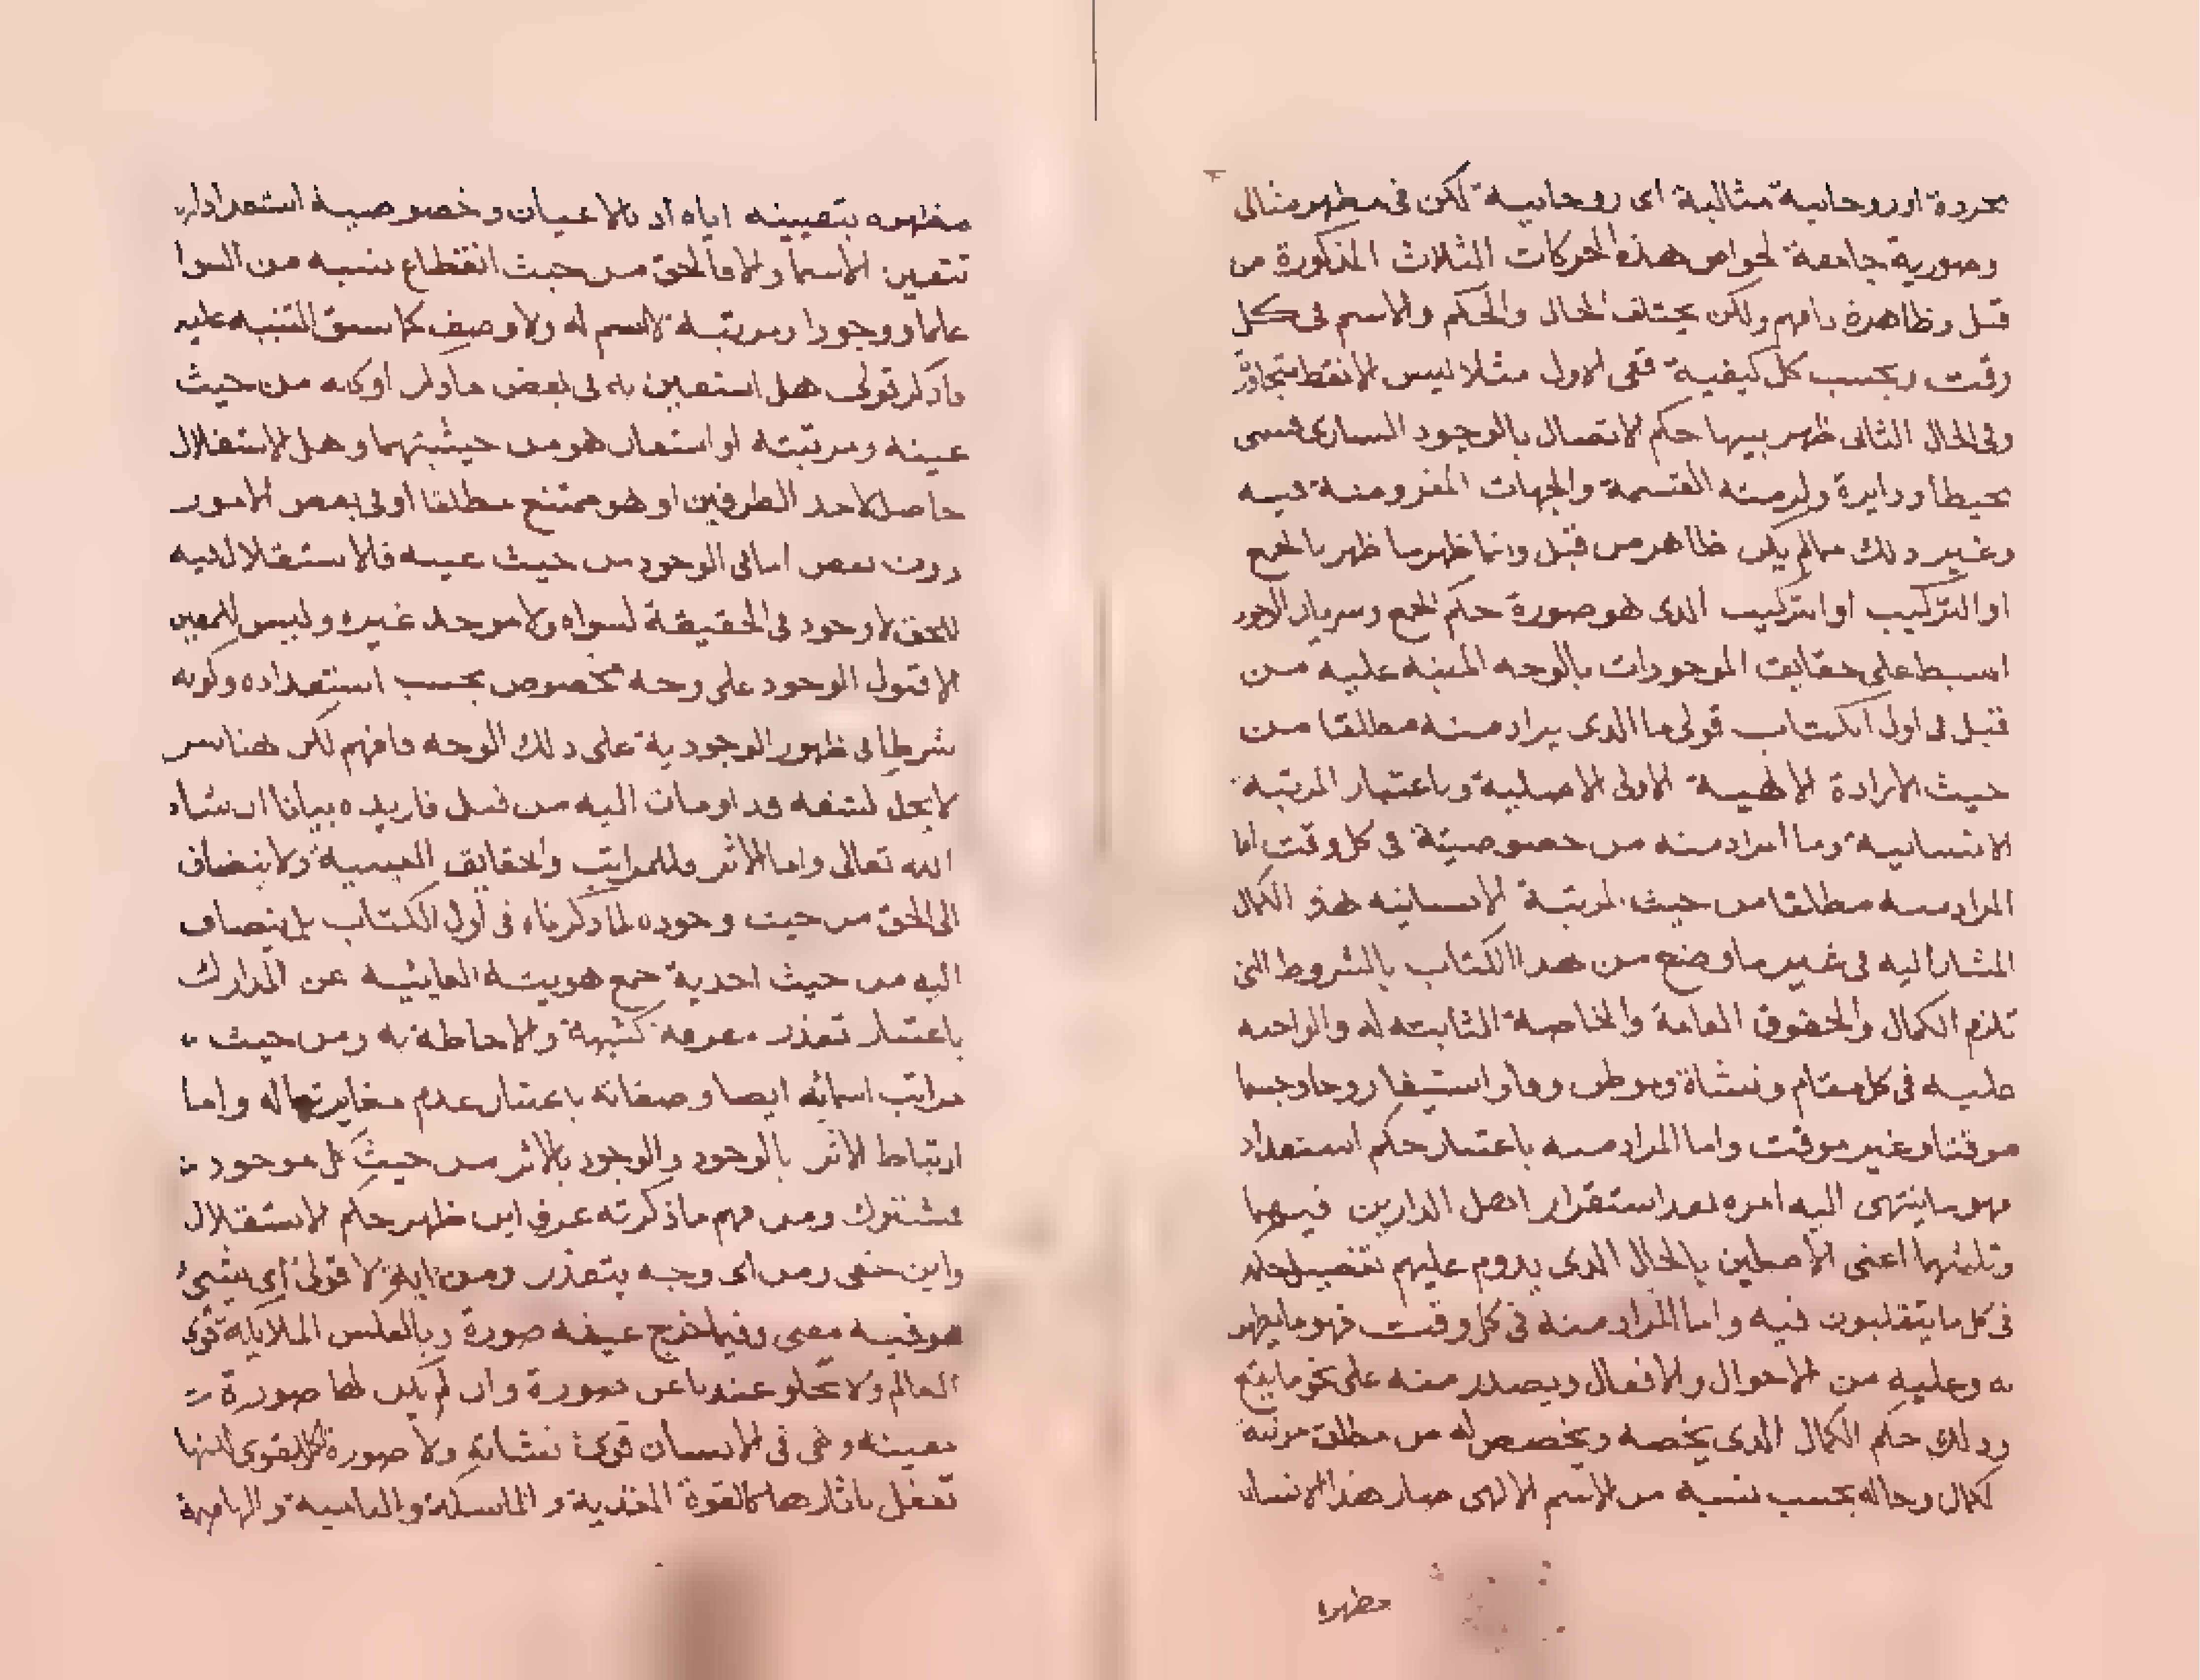 مجردة او روحانية مثالية اى روحانية لكن فى مظهر مثالى
وصورية جامعة لخواص هذه الحركات الثلاث المذكورة من
قبل وظاهرة بافهم ولكن يختلف الحال والحكم والاسم فى كل
وقت وبحسب كل كيفية ففى الاول مثلا ليس الا نقط تتجاوز
وفى الحال الثانى ظهر بينها حكم الاتصال بالوجود السارى فسمى
محيطا ودايرة ولزمته القسمة والجهات المفروضة فيه
وغير ذلك مما لم يكن ظاهر من قبل وانما ظهر ما ظهر بالجمع
او التركيب او التركيب الذى هو صورة حكم الجمع وسريان الوجود
على حقايق الموجودات بالوجه المنبه عليه من
قبل فى اول الكتاب قولى ما الذى يراد منه مطلقا من
حيث الارادة الالهية الاولى الاصلية وباعتبار المرتبة
الانسانية وما المراد منه من خصوصيته فى كل وقت اما
المراد منه مطلقا من حيث المرتبة الانسانيه هو الكمال
المشار اليه فى غير ما وضع من هذا الكتاب بالشروط التى
تلزم الكمال والحقوق العامة والخاصة الثابته له والواجبه
عليه فى كل مقام ونشاة وموطن روحا وجسما
موقتا وغير موقت واما المراد منه باعتبار حكم استعداد
فهو ما ينتهى اليه امره بعد استقرار اهل الدارين فيهما
اعنى الاصلين بالحال الذى يدوم عليهم تفصيل حكمه
فى كل ما يتقلبون فيه واما المراد منه فى كل وقت فهو ما يظهر
به وعليه من الاحوال والافعال ويصدر منه على نحو ما يقع
وذلك حكم الكمال الذى يخصه ويخصص له من مطلق مرتبة
الكمال وحاله بحسب نسبه من الاسم الالهى صار هذا الانسان
مظهرا
مظهره بتعيينه اياه اذ بالاعيان وخصوصية استعداداتها
تتعين الاسما والا فالحق من حيث انقطاع نسبه من السوا
علما ووجودا ومرتبة لا اسم له ولا وصف كما سبق التنبيه عليه
فاذكر قولى هل استعين به فى بعض ما ذكر او كله من حيث
عينه ومرتبته او استعان هو من حيثيتهما وهل الاستقلال
حاصل لاحد الطرفين او هو ممتنع مطلقا او فى بعض الامور
دون بعض اما فى الوجود من حيث عينه فالاستقلال فيه
للحق لا وجود فى الحقيقة لسواه ولا موجد غيره وليس للمعين
الا قبول الوجود على وجه مخصوص بحسب استعداده وكونه
شرطا فى ظهور الوجود به على ذلك الوجه فافهم لكن هنا سر
لا يحل كشفه قد اومات اليه من قبل فازيده بيانا ان شاء
الله تعالى واما الاثر فللمراتب والحقايق الغيبية ولا ينضاف
الى الحق من حيث وجوده لما ذكرناه فى اول الكتاب بل ينضاف
اليه من حيث احدية جمع هويته الغايبة عن المدارك
باعتبار تعذر معرفة كنهها والاحاطة به ومن حيث
مراتب اسمائه ايضا وصفاته باعتبار عدم مغايرتها له واما
ارتباط الاثر بالوجود والوجود بالاثر من حيث كل موجود
فمشترك ومن فهم ما ذكرته عرف اين ظهر حكم الاستقلال
واين خفى ومن اى وجه يتعذر ومن ايه لا قولى اى شيء
هو فيه معنى وفيما خرج عنه صورة وبالعكس الملايكة قوى
العالم ولا تخلو عندنا عن صورة وان لم يكن لها صورة
معينة وهى فى الانسان قوى نشاته ولا صورة لتلك القوى لكنها
تفعل باثارها كالقوة المغذية والماسكة والنامية والهاضمة